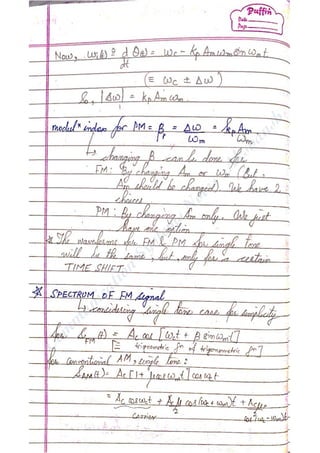 Puffin
Date
Page
Now, ωi(t) = d/dt θ(t) = ωc - kp Am ωm sin ωm t.
(≡ ωc ± Δω)
So, |Δω| = kp Am ωm.
modulⁿ index for PM = βp = Δω/ωm = kp Am/ωm
↳ changing β can be done for
FM: By changing Am or ωm (But,
Am should be changed). We have 2
choices
PM: By changing Am only. We just
have one option
* The waveforms for FM & PM for single tone
will be the same, but only for a certain
TIME SHIFT.
* SPECTRUM OF FM signal
↳ considering single tone case for simplicity
for SFM(t) = Ac cos [ωct + β sin ωmt]
[≡ trigonometric fⁿ of trigonometric fⁿ]
for conventional AM, single tone:
SAM(t) = Ac [1 + μ cos ωmt] cos ωct
= Ac cos ωct + Acμ/2 cos (ωc + ωm)t + Acμ/2 cos (ωc - ωm)t
carrier